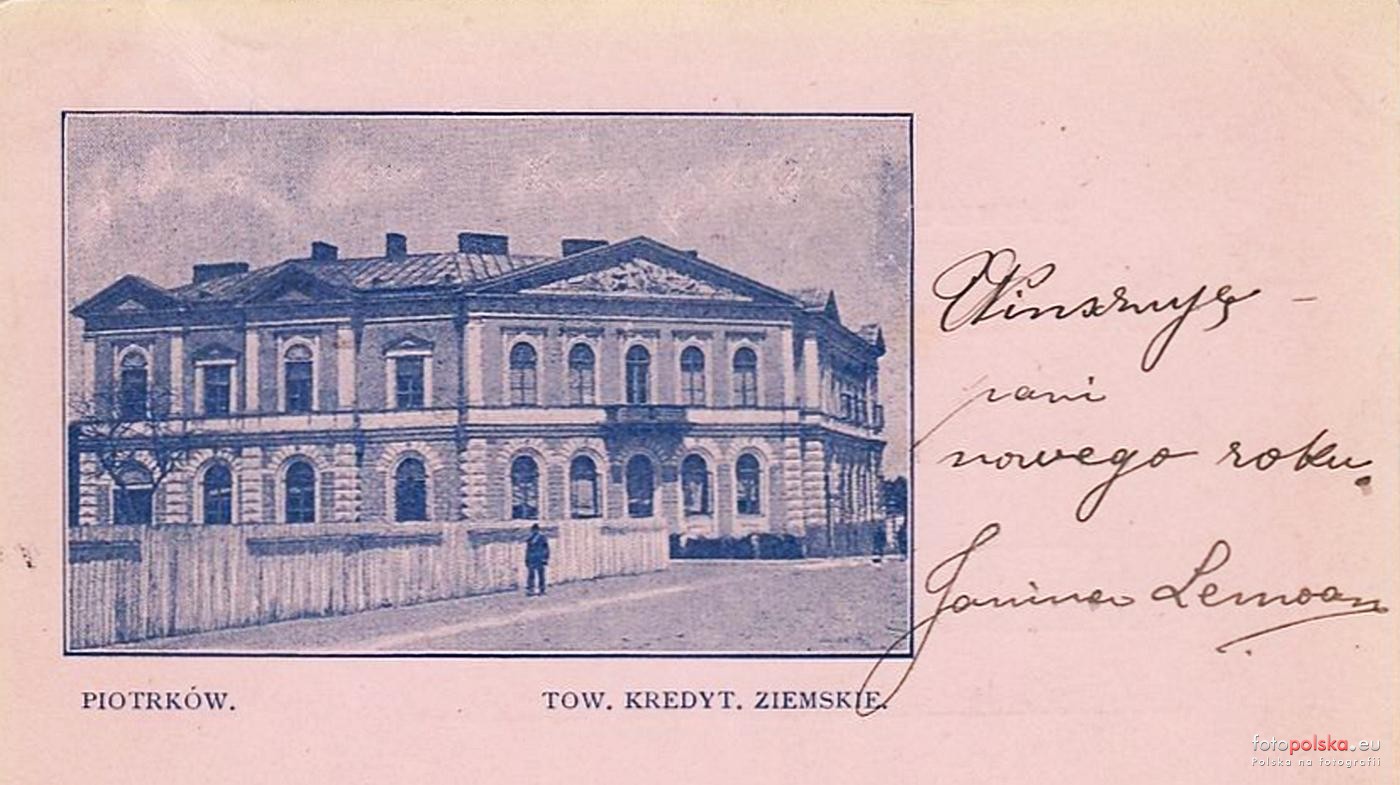 Winszuję –
pani
nowego roku.
Janina
PIOTRKÓW.
TOW. KREDYT. ZIEMSKIE.
fotopolska.eu
Polska na fotografii